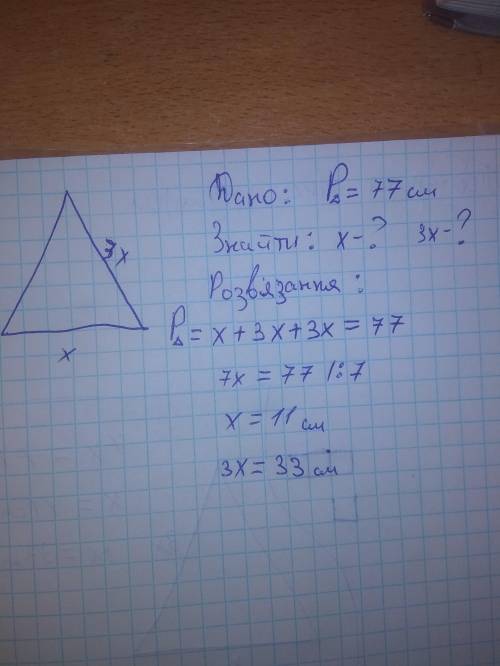 Дано: P△ = 77 см
Знайти: x - ? 3x - ?
Розв'язання:
P△ = x + 3x + 3x = 77
7x = 77 |:7
x = 11 см
3x = 33 см
3x
x